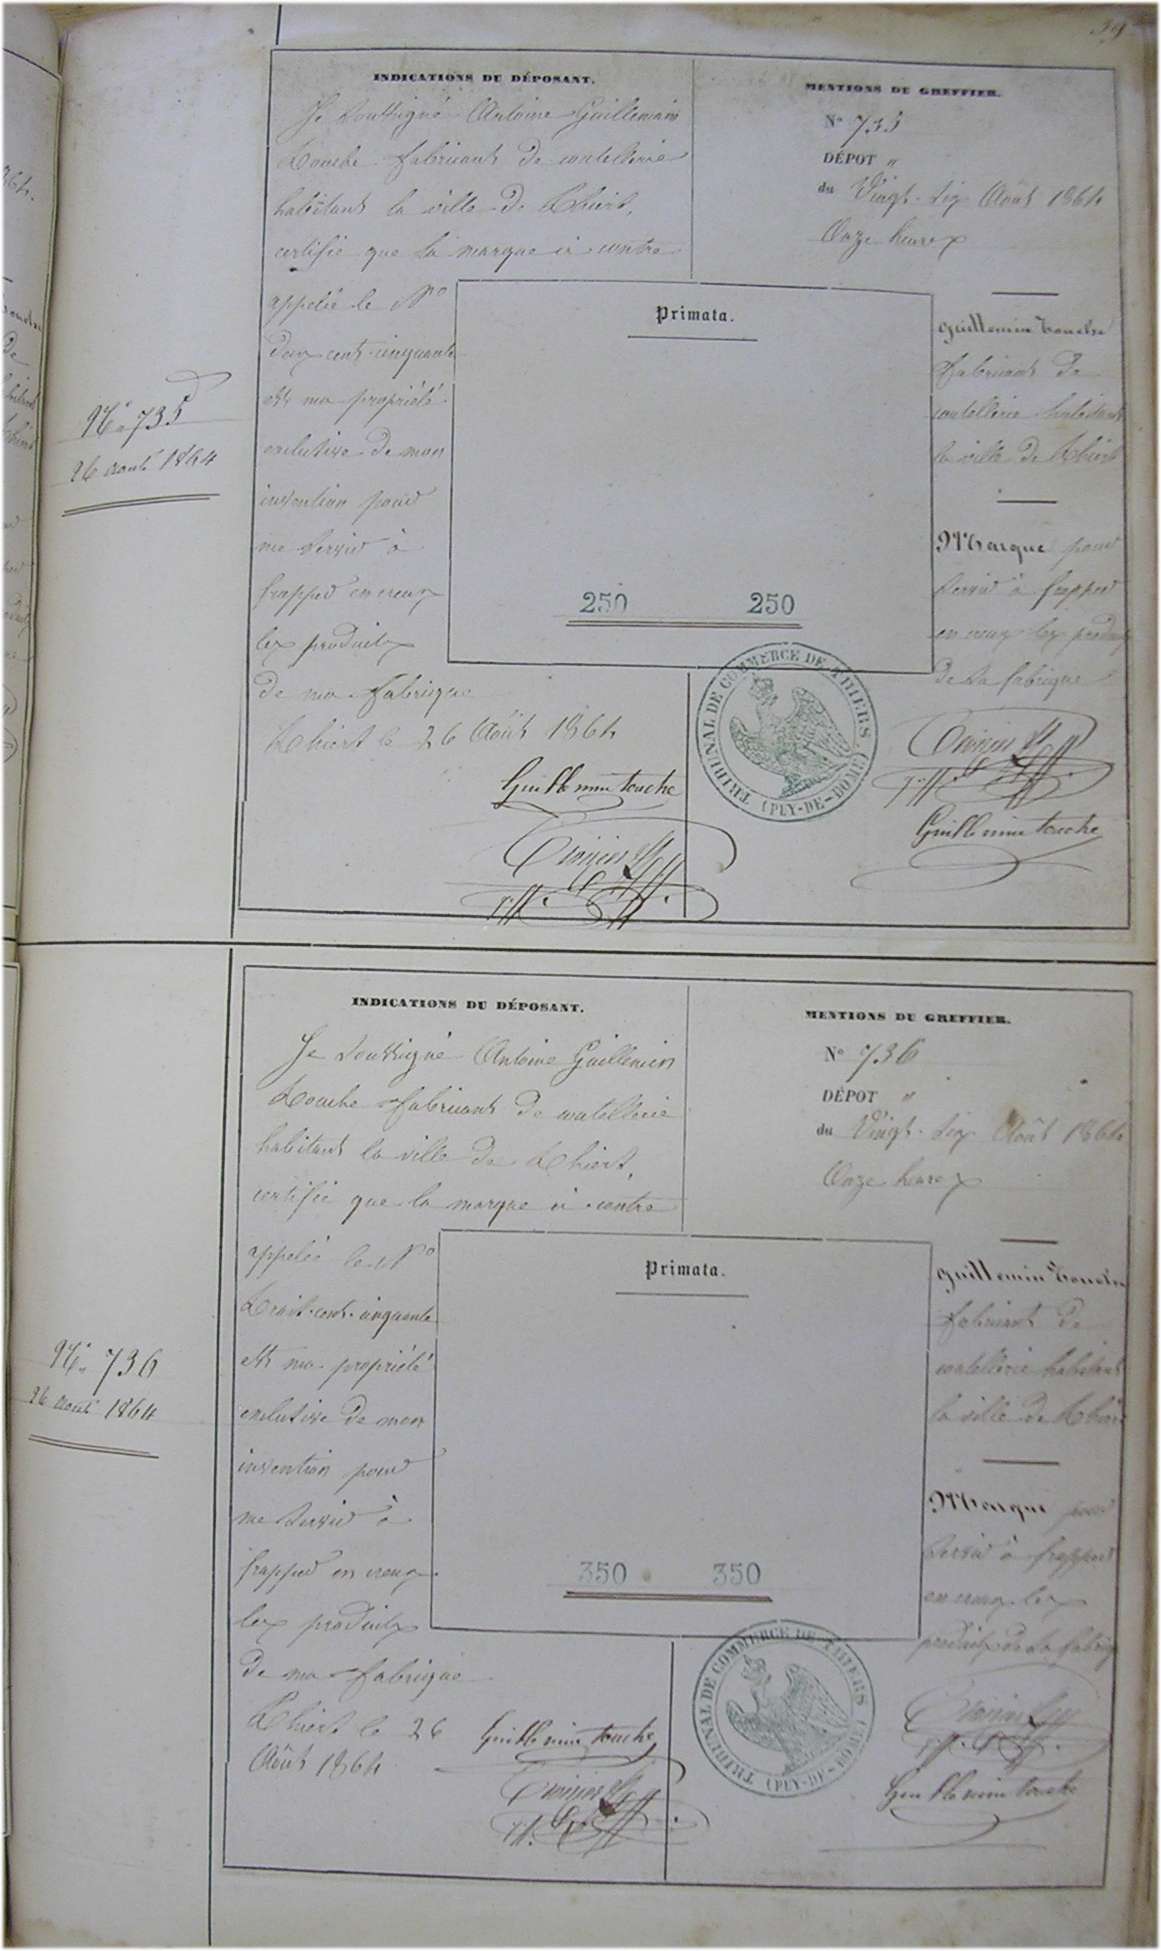 39
INDICATIONS DU DÉPOSANT.
Je soussigné Antoine Guillemin
Touche fabricant de coutellerie
habitant la ville de Thiers,
certifie que la marque ci contre
appelée le No
deux cent cinquante
est ma propriété
exclusive de mon
invention pour
me servir à
frapper en creux
les produits
de ma fabrique
Thiers le 26 Août 1864
Guillemin touche
MENTIONS DU GREFFIER.
No 735
DÉPOT "
du Vingt-six Août 1864
Onze heures
Guillemin Touche
fabricant de
coutellerie habitant
la ville de Thiers
Marque pour
servir à frapper
en creux les produits
de sa fabrique
Guillemin touche
Primata.
250 250
TRIBUNAL DE COMMERCE DE THIERS
(PUY-DE-DOME)
No 735
26 août 1864
INDICATIONS DU DÉPOSANT.
Je soussigné Antoine Guillemin
Touche fabricant de coutellerie
habitant la ville de Thiers,
certifie que la marque ci contre
appelée le No
Trois-cent-cinquante
est ma propriété
exclusive de mon
invention pour
me servir à
frapper en creux
les produits
de ma fabrique
Thiers le 26
Août 1864
Guillemin touche
MENTIONS DU GREFFIER.
No 736
DÉPOT "
du Vingt-six Août 1864
Onze heures
Guillemin Touche
fabricant de
coutellerie habitant
la ville de Thiers
Marque pour
servir à frapper
en creux les
produits de sa fabriq
Guillemin touche
Primata.
350 350
TRIBUNAL DE COMMERCE DE THIERS
(PUY-DE-DOME)
No 736
26 août 1864